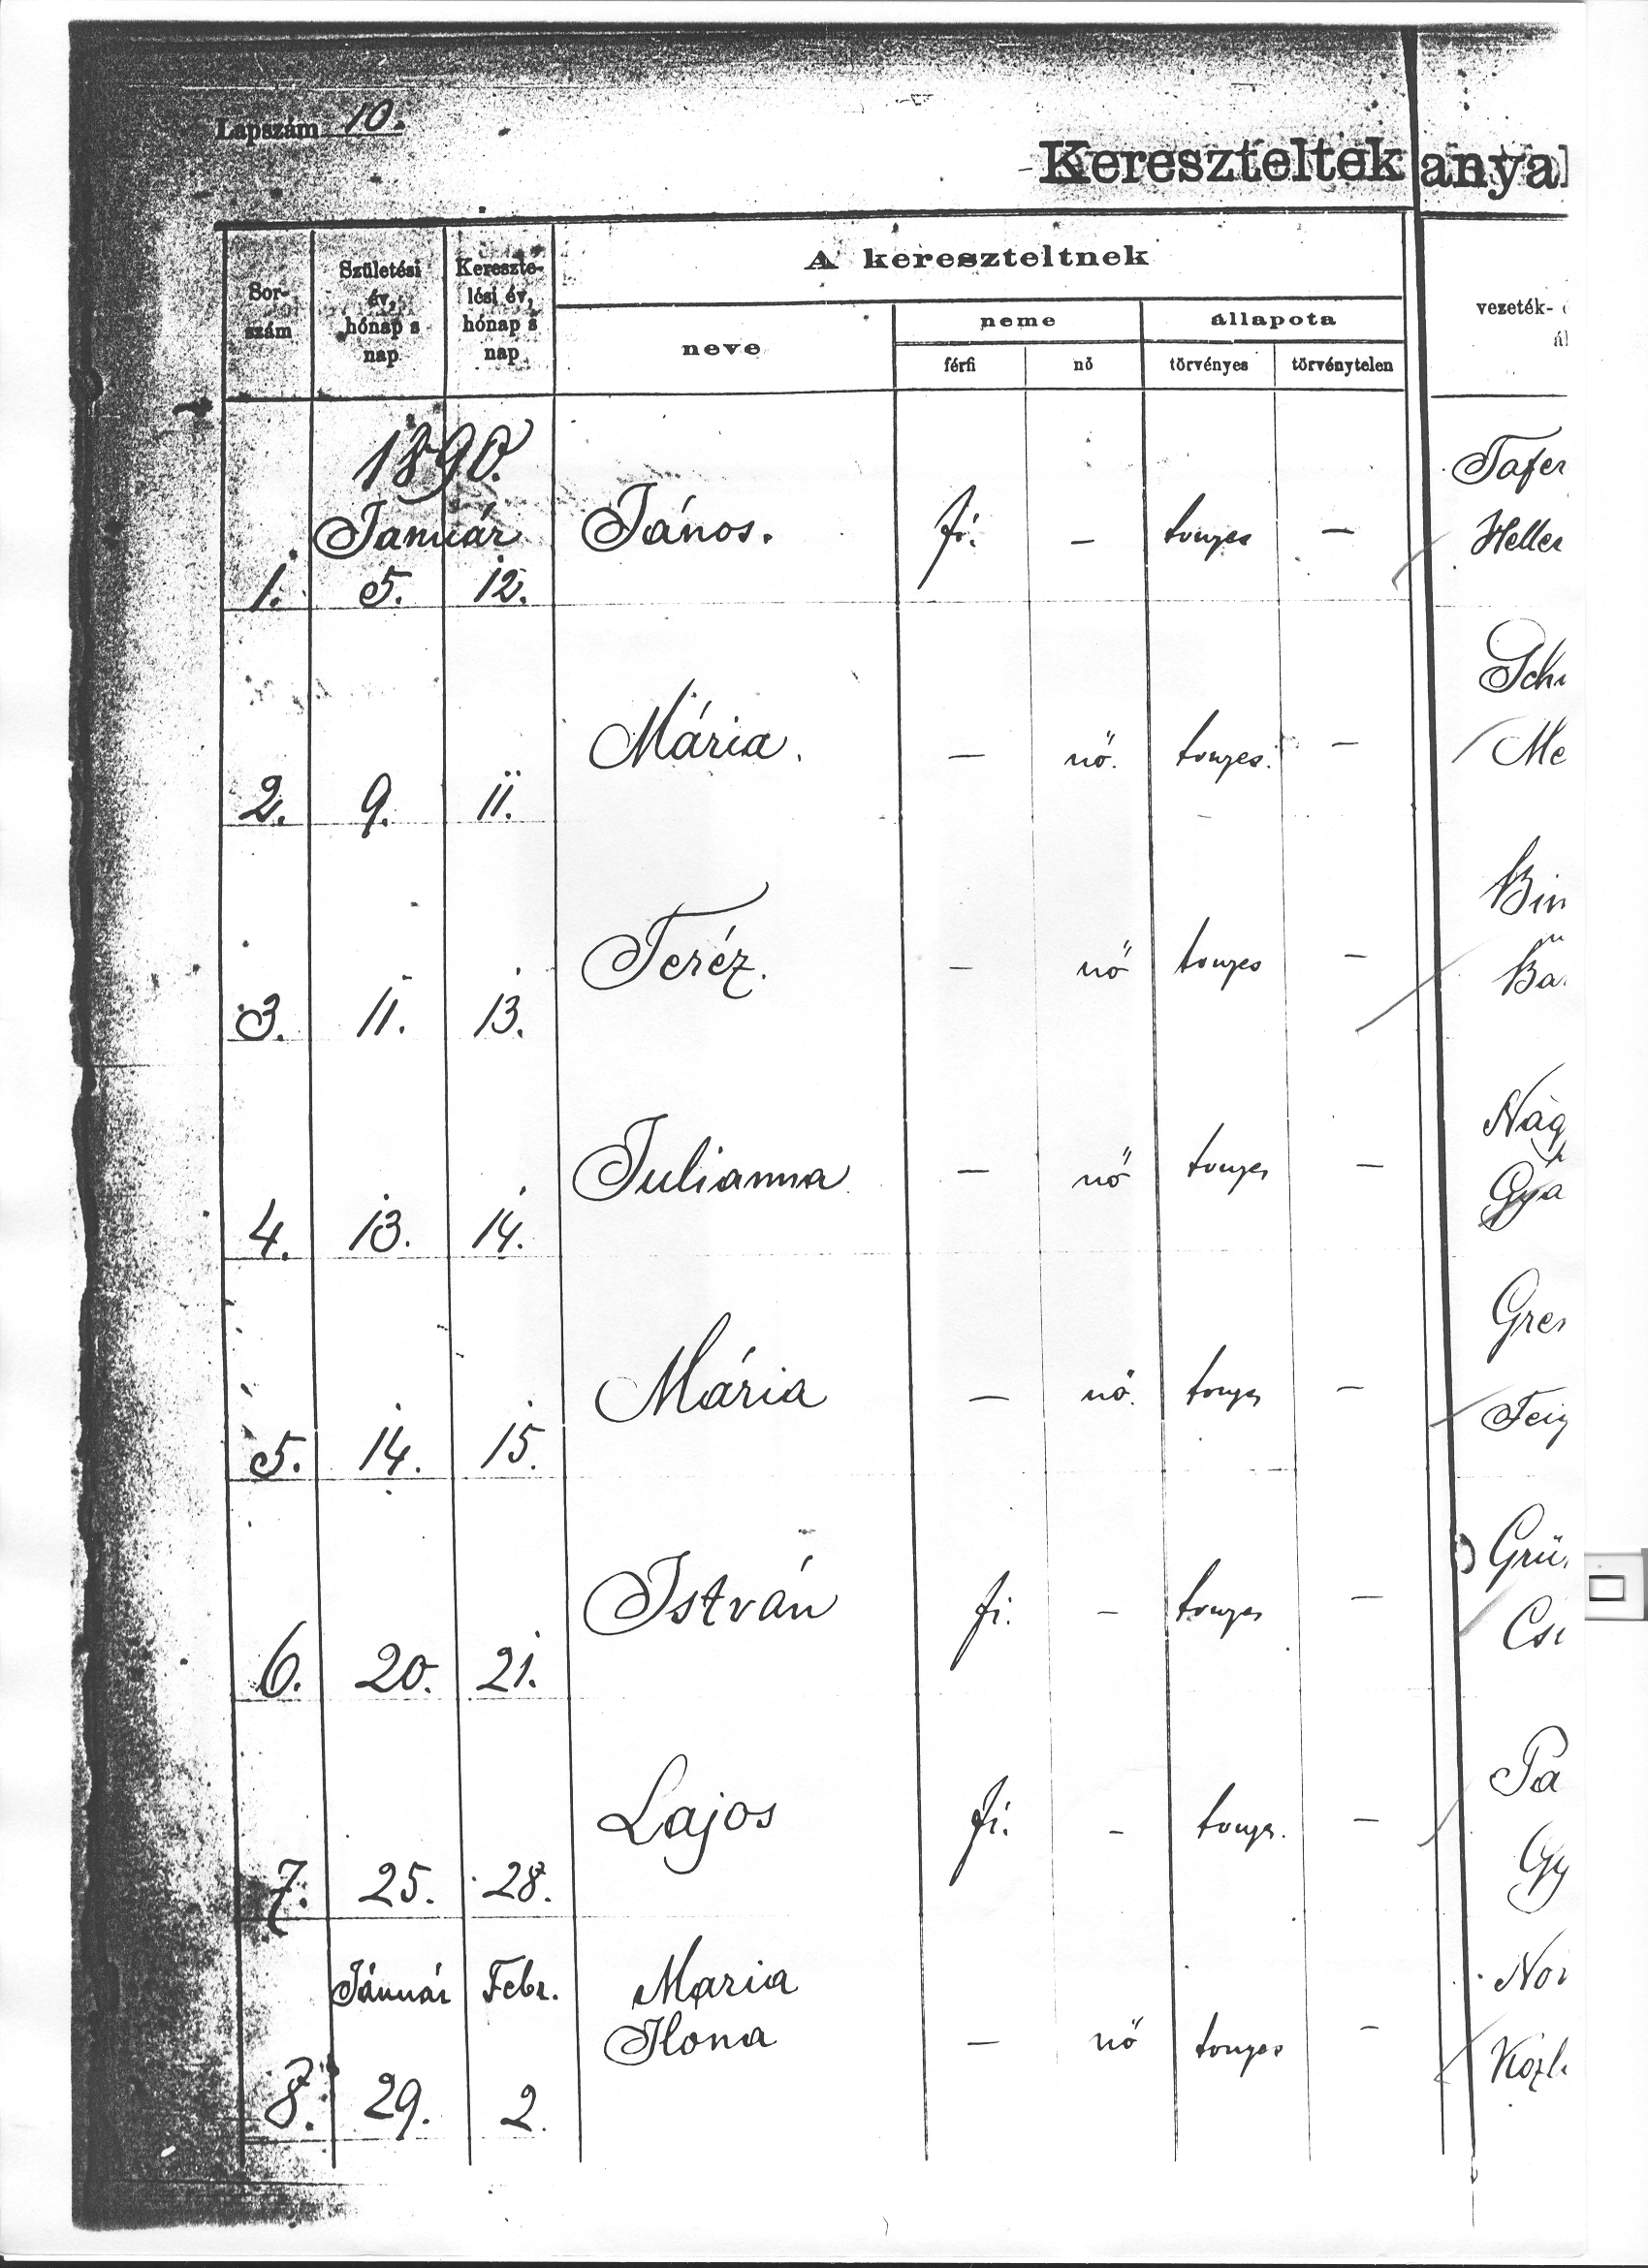 Lapszám 10.
Kereszteltek anyak
Sor-
szám
Születési
év,
hónap s
nap
Keresztelési
lési év,
hónap s
nap
A kereszteltnek
neve
neme
férfi
nő
állapota
törvényes
törvénytelen
vezeték-
1890.
Január
1. 5. 12. János. fi. – tvnyes –
Tafer
Heller
2. 9. 11. Mária. – nő. tvnyes. –
Sch
Me
3. 11. 13. Teréz. – nő tvnyes –
Bin
Ba
4. 13. 14. Julianna – nő tvnyes –
Nag
Gya
5. 14. 15. Mária – nő. tvnyes –
Gre
Feig
6. 20. 21. István fi. – tvnyes –
Grü
Csi
7. 25. 28. Lajos fi. – tvnyes. –
Pa
Gy
Január Febr. Maria
8. 29. 2. Ilona – nő tvnyes –
Nov
Kozl